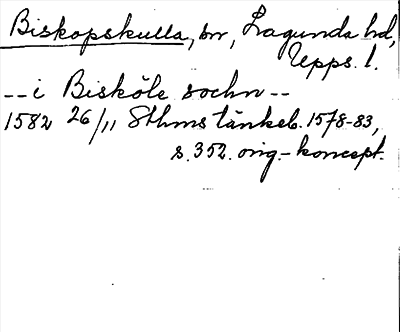 Biskopskulla, sn, Lagunda hd,
Upps. l.
-- i Bisköle sochn --
1582 26/11 Sthms tänkeb. 1578-83,
s. 352. orig.-koncept.